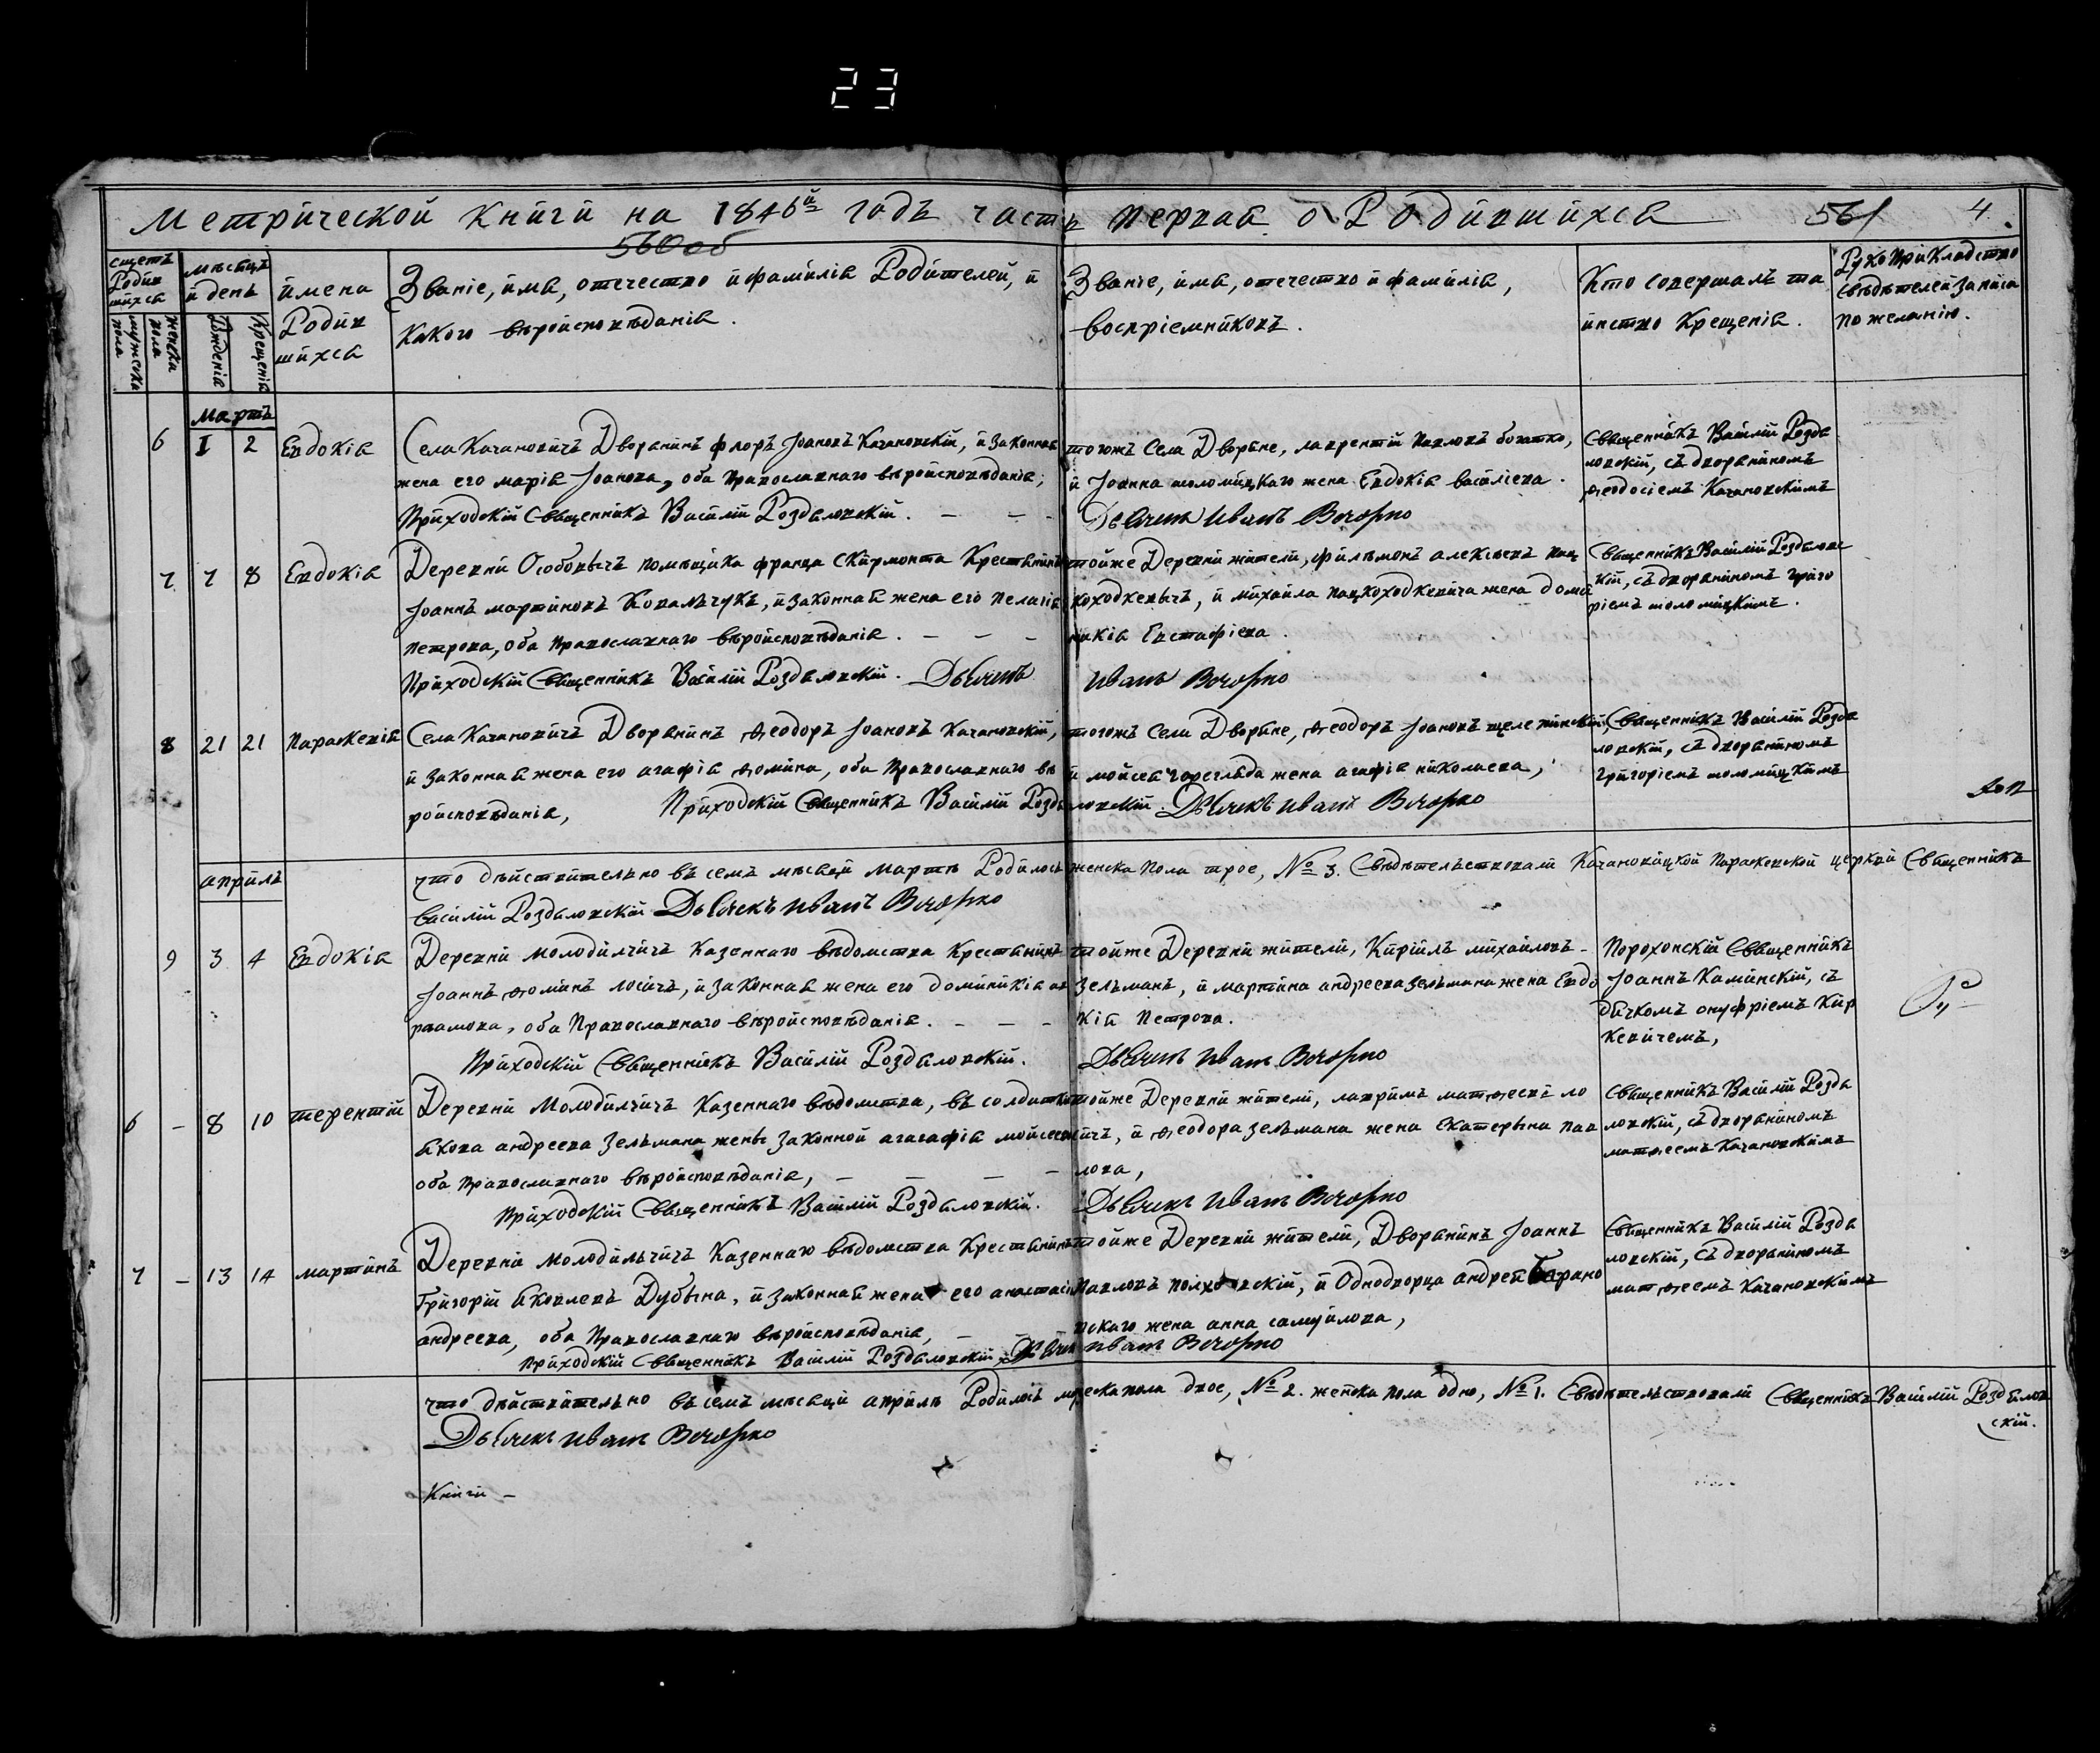 23
Метрической книги на 1846й годъ часть первая о Родившихся 561 4.
560об
Счетъ Родившихся
мужеска пола
женска пола
Мѣсяцъ и день
Рожденія
Крещенія
имена Родившихся
Званіе, имя, отечество и фамилія Родителей, и
какого вѣроисповѣданія.
Званіе, имя, отечество и фамилія,
воспріемниковъ.
Кто совершалъ та
инство Крещенія.
Рукоприкладство
свѣдѣтелей записа
по желанію.
Мартъ
6 1 2 Евдокія
Села Качановичъ Дворянинъ Флоръ Іоановъ Качановскій, и законная
жена его Марія Іоанова, оба православнаго вѣроисповѣданія;
Приходскій Священникъ Василій Роздяловскій. — — -
тогожъ Села Дворяне, лаврентій Павловъ богатко,
и Іоанна толомицкаго жена Евдокія василіева.
Дьячекъ Иванъ Вечорко
Священникъ Василій Роздя
ловскій, съ дворяниномъ
Ѳеодосіемъ Качановскимъ
7 7 8 Евдокія
Деревни Особовичъ помѣщика франца Скирмонта Крестянинъ
Іоаннъ мартиновъ Ковальчукъ, и законная жена его пелагія
петрова, оба православнаго вѣроисповѣданія. — — —
Приходскій Священникъ Василій Роздяловскій. Дьячекъ
тойже Деревни жители, филѣмонъ алексѣевъ пац
коходкевичъ, и михайла пацкоходкевича жена доми
никія Евстафіева.
Иванъ Вечорко
Священникъ Василій Роздяловс
кій, съ дворяниномъ григо
ріемъ толомицкимъ.
8 21 21 Параскевія
Села Качановичъ Дворянинъ Ѳеодоръ Іоановъ Качановскій,
и законная жена его агафія Ѳомина, оба православнаго вѣ
роисповѣданія, Приходскій Священникъ Василій Роздяловскій. Дьячекъ иванъ Вечорко
тогожъ Села Дворяне, Ѳеодоръ Іоановъ
и мойсея жена агафія николаева,
Священникъ Василій Роздя
ловскій, съ дворяниномъ
григоріемъ толомицкимъ
что дѣйствительно въ семъ мѣсяцѣ мартѣ Родилось женска пола трое, № 3. Свѣдѣтельствовали Качановицкой параскевской церкви Священникъ
василій Роздяловскій Дьячекъ иванъ Вечорко
апрѣль
9 3 4 Евдокія
Деревни молодильчичъ казеннаго вѣдомства крестянинъ
Іоаннъ Ѳоминъ лосичъ, и законная жена его доминикія ав
рамова, оба Православнаго вѣроисповѣданія. — — —
Приходскій Священникъ Василій Роздяловскій.
тойже Деревни жители, Кирилъ михайловъ -
зельманъ, и мартина андреева зельмана жена Евдо
кія Петрова.
Дьячекъ Иванъ Вечорко
Порохонскій Священникъ
Іоаннъ Каминскій, съ
дячкомъ онуфріемъ Кир
кевичемъ,
6 — 8 10 терентій
Деревни Молодильчичъ казеннаго вѣдомства, въ
якова андреева зельмана жены законной агагафіи мойсеевой
оба православнаго вѣроисповѣданія, — — —
Приходскій Священникъ Василій Роздяловскій.
тойже Деревни жители, лавримъ матѳеевъ ло
ичъ, и Ѳеодора зельмана жена Екатерына пав
лова,
Дьячекъ Иванъ Вечорко
Священникъ Василій Роздя
ловскій, съ дворяниномъ
матѳеемъ Качановскимъ
7 — 13 14 мартинъ
Деревни молодильчичъ Казеннаго вѣдомства Крестянинъ
Григорій яковлевъ Дубына, и законная жена его анастасія
андреева, оба Православнаго вѣроисповѣданія, —
Приходскій Священникъ Василій Роздяловскій, Дьячекъ иванъ Вечорко
тойже Деревни жители, Дворянинъ Іоаннъ
Павловъ полховскій, и Однодворца андрея Барано
вскаго жена анна самуйлова,
Священникъ Василій Роздя
ловскій, съ дворяниномъ
матѳеемъ Качановскимъ
что дѣйствительно въ семъ мѣсяцѣ апрѣлѣ Родилось мужеска пола двое, № 2. женска пола одно, № 1. Свѣдѣтельствовали Священникъ Василій Роздялов
скій.
Дьячекъ иванъ Вечорко
Книги —